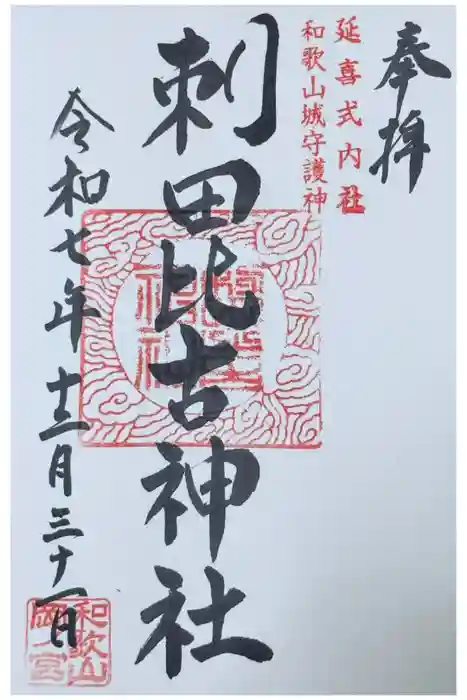 奉拝
延喜式内社
和歌山城守護神
刺田比古神社
令和七年十二月三十一日
和歌山
岡宮